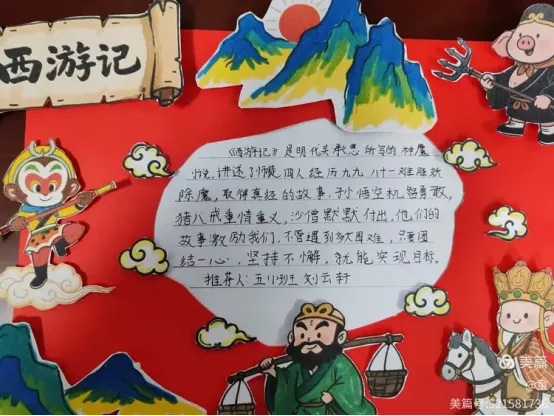 西游记
《西游记》是明代吴承恩所写的神魔
小说,讲述了师徒四人经历九九八十一难降妖
除魔,取得真经的故事,孙悟空机智勇敢,
猪八戒重情重义,沙僧默默付出,他们的
故事激励我们,不管遇到多大困难,只要团
结一心,坚持不懈,就能实现目标。
推荐人:五(1)班 刘云轩
美篇
美篇号:5215817